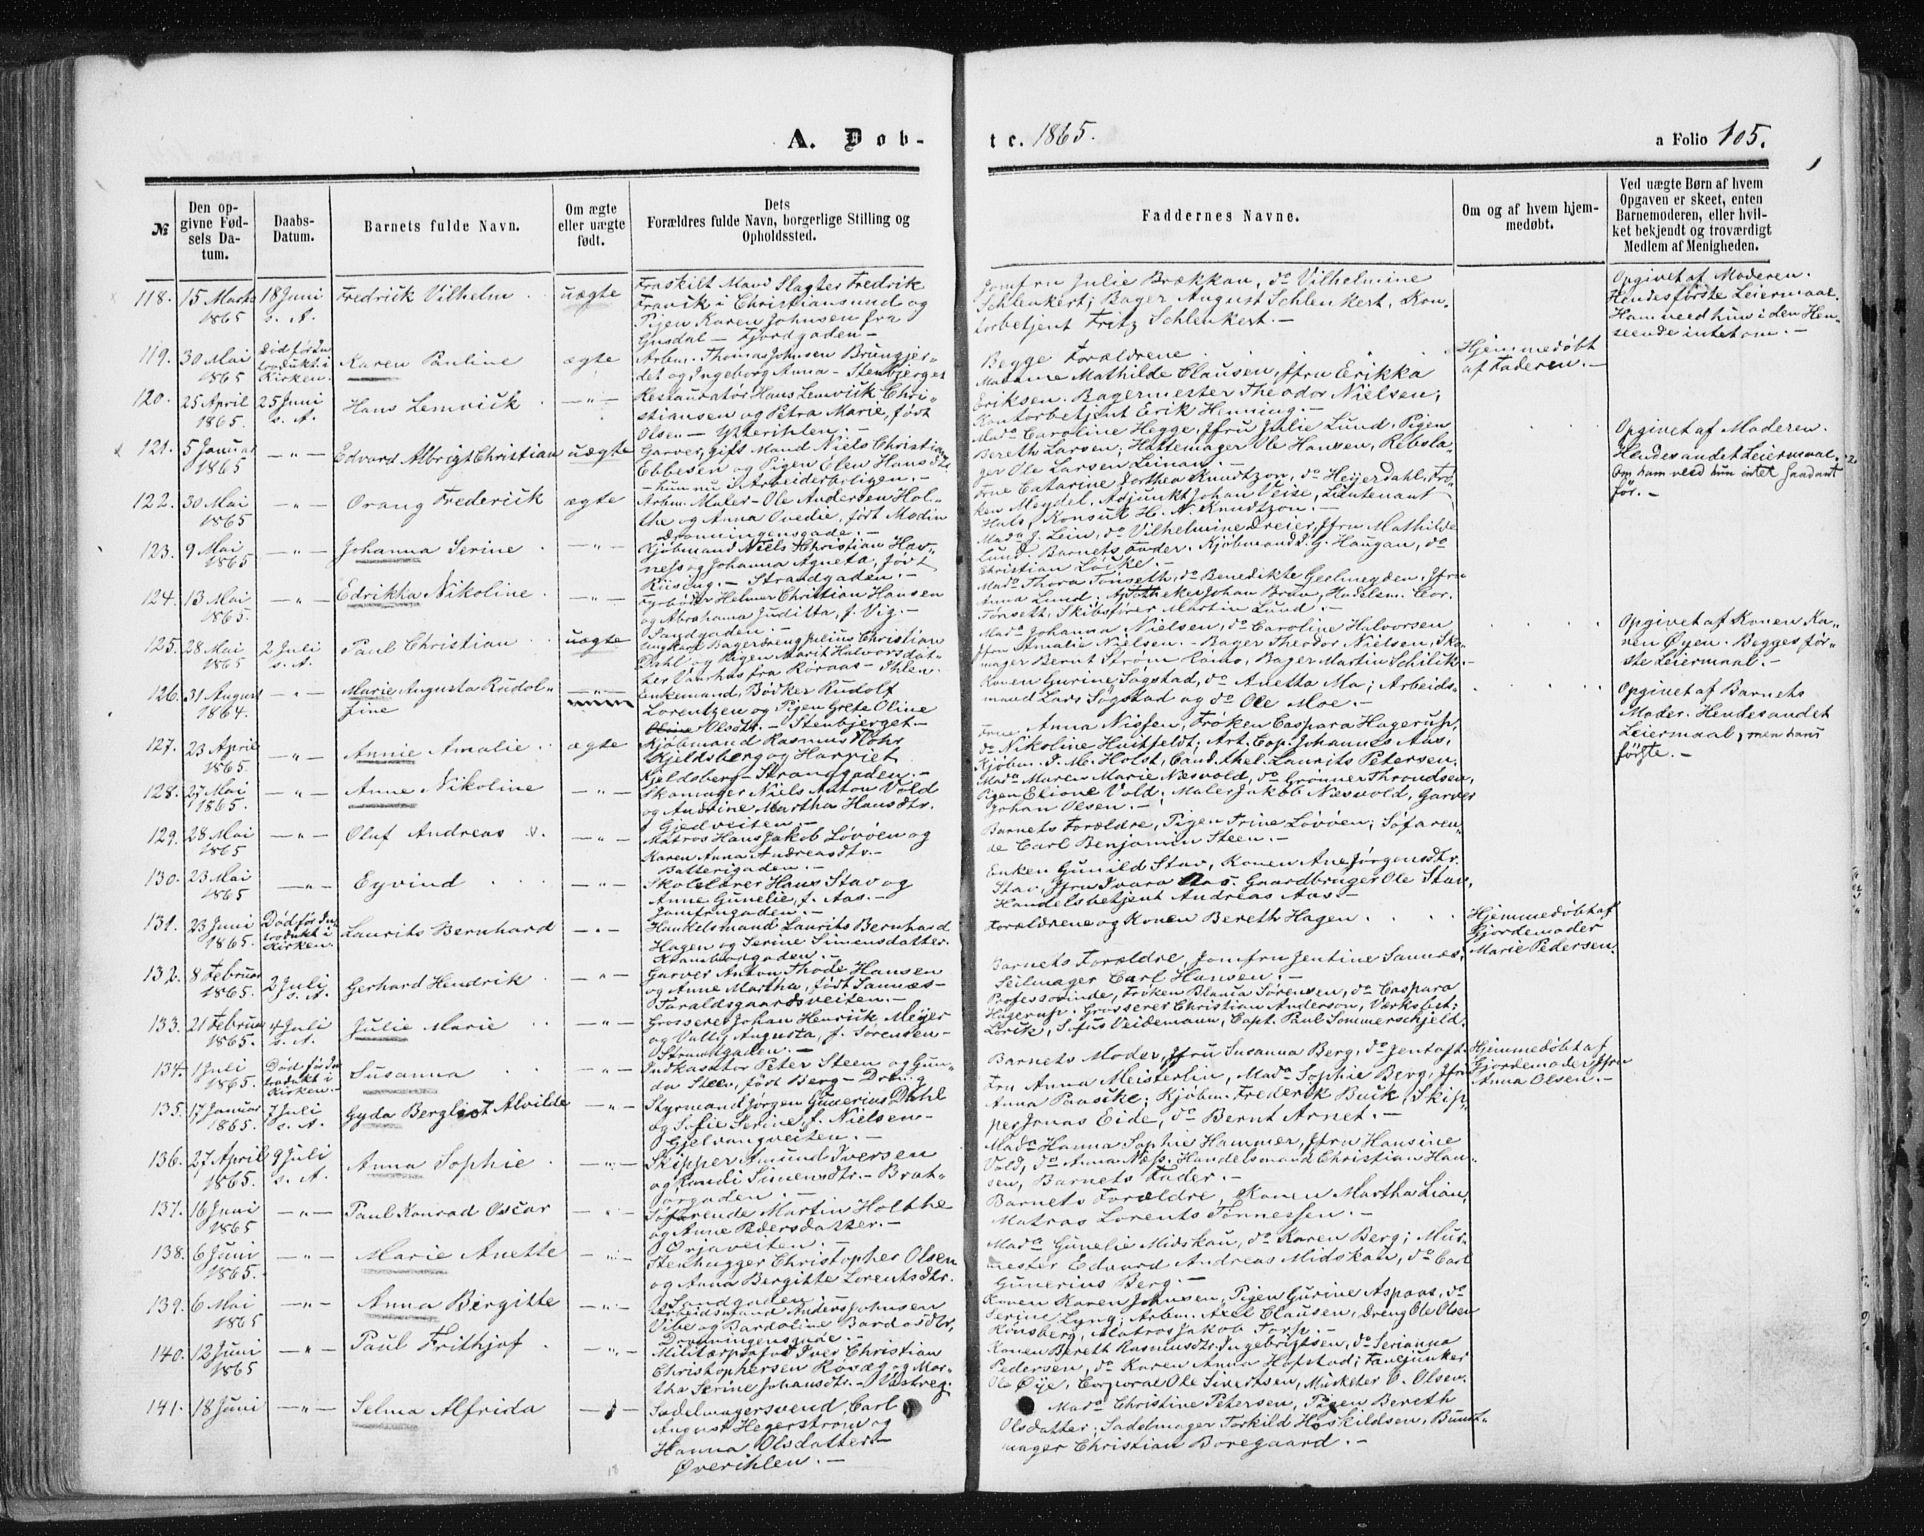 A. Døb-
te. 1865.
a Folio 105.
№
Den op-
givne Fød-
sels Da-
tum.
Daabs-
Datum.
Barnets fulde Navn.
Om ægte
eller uægte
født.
Dets
Forældres fulde Navn, borgerlige Stilling og
Opholdssted.
Faddernes Navne.
Om og af hvem hjem-
medøbt.
Ved uægte Børn af hvem
Opgaven er skeet, enten
Barnemoderen, eller hvil-
ket bekjendt og troværdigt
Medlem af Menigheden.
118. 15 Marts 1865 18 Juni s. A. Fredrik Vilhelm uægte
Fraskilt Mand Slagter Fredrik
Franck i Christiansund og
Pigen Karen Johnsen fra
Jomfru Julie Brækkan, do Vilhelmine
Schlenkert; Bager August Schlenkert, Kon-
torbetjent Fritz Schlenkert.—
Opgivet af Moderen.
Hendes første Leiermaal.
Ham veed hun i den Hen-
seende intet om.—
119. 30 Mai 1865 Død før In-
trodukt. i
Kirken. Karen Pauline ægte
Arbm. Thomas Johnsen Brungjer-
det og Ingeborg Anna - Stenbjerget
Begge Forældrene
Hjemmedøbt
af Faderen.—
120. 25 April 1865. 25 Juni s. A. Hans Lemvick — " —
Restauratør Hans Lemvick Chri-
stiansen og Petra Marie, født
Olsen — Ytterihlen.—
Madame Mathilde Clausen, Jfru Erikka
Eriksen. Bagermester Theodor Nielsen;
Kontorbetjent Erik Henning.—
121. 5 Januar 1865 — " — Edvard Albrigt Christian uægte
Garver, gift Mand Niels Christian
Ebbesen og Pigen Olen Hansdtr
— hun nu i Arbeiderboligen.—
Mada Caroline Hegge, Jfru Julie Lund, Pigen
Bereth Larsen; Hattemager Ole Hansen, Rebsla-
ger Ole Larsen Leinan.—
Opgivet af Moderen.
Hendes andet Leiermaal.
Om ham veed hun intet saadant
før.—
122. 30 Mai 1865 — " — Orang Frederik ægte
Arbm. Maler Ole Andersen Hol-
the og Anna Ovedie, født Modin
Dronningensgade.—
Frue Catarine Dorthea Knudtzon, do Heyerdahl, Frø-
ken Meydel. Adjunkt Johan Veise, Lieutenant
Hals, Konsul H. N. Knudtzon.—
123. 9 Mai 1865 — " — Johanna Serine — " —
Kjøbmand Niels Christian Hav-
ness og Johanna Agneta, født
Riising.— Strandgaden.—
Mada J. Lein, do Vilhelmine Dreier, Jfru Mathilde
Lund. Barnets Fader. Kjøbmand J. G. Haugan, do
Christian Løcke.—
124. 13 Mai 1865. — " — Edrikka Nikoline — " —
Fyrbøder Helmer Christian Hansen
og Abrahama Juditta, f. Vig.—
Sandgaden.—
Mada Thora Tønseth, do Benedikte Geelmeyden, Jfru
Anna Lund. Apotheker Johan Brun, Handelsm. Cor.
Tønseth, Skibsfører Martin Lund.—
125. 28 Mai 1865 2 Juli s. A. Paul Christian uægte
Ungkarl Bagerdreng Julius Christian
Dahl og Pigen Marit Halvorsdat-
ter Vaarhus fra Røraas - Ihlen.
Mada Johanna Nielsen, do Caroline Halvorsen
Jfru Amalie Nielsen. Bager Theodor Nielsen, Sko-
mager Bernt Strøm Romo, Bager Martin Schilik.—
Opgivet af Konen Ka-
ren Øyen. Begges før-
ste Leiermaal.—
126. 31 August 1864. — " — Marie Augusta Rudol-
fine — " —
Enkemand, Bødker Rudolf
Lorentzen og Pigen Grete Oline
Olsdtr.— Stenbjerget.—
Konen Gurine Søgstad, do Anetta Mo; Arbeids-
mand Lars Søgstad og do Ole Moe.—
Opgivet af Barnets
Moder. Hendes andet
Leiermaal, men hans
første.—
127. 23 April 1865. — " — Annie Amalie ægte
Kjøbmand Rasmus Rohr
Kjeldsberg og Harriet
Kjeldsberg - Strandgaden.—
Frue Anna Nissen, Frøken Caspara Hagerup,
do Nikoline Huitfeldt; Art. Cap. Johannes Aas,
Kjøbm. J. M. Holst, Cand. theol. Laurits Petersen.
128. 27 Mai 1865. — " — Anne Nikoline — " —
Skomager Niels Anton Vold
og Andrine Martha Hansdtr.
Gjedveiten.—
Mada Maren Marie Næsvold, do Grønner Throndsen,
Pigen Elione Vold; Maler Jakob Næsvold, Garver
Johan Olsen.—
129. 28 Mai 1865 — " — Oluf Andreas — " —
Matros Hans Jakob Løvøen og
Karen Anna Andreasdtr.—
Batterigaden.—
Barnets Forældre, Pigen Trine Løvøen; Søfaren-
de Carl Benjamin Steen.—
130. 23 Mai 1865 — " — Eyvind — " —
Skolelærer Hans Stav og
Anne Gunelie, f. Aas.—
Jomfrugaden.—
Enken Gunild Stav, Konen Ane Jørgensdtr.
Stav, Jfru Ivara Aas. Gaardbruger Ole Stav,
Handelsbetjent Andreas Aas.—
131. 23 Juni 1865. Død før In-
trodukt i
Kirken. Laurits Bernhard — " —
Handelsmand Laurits Bernhard
Hagen og Serine Simensdatter.
Krambodgaden.—
Forældrene og Konen Bereth Hagen
Hjemmedøbt af
Gjordemoder
Marie Pedersen.
132. 8 Februar 1865. 2 Juli s. A. Gerhard Hendrik — " —
Garver Anton Thode Hansen
og Anne Martha, født Sannæs—
Taraldsgaardsveiten.—
Barnets Forældre, Jomfru Jentine Sannæs;
Seilmager Carl Hansen.—
133. 21 Februar 1865. 4 Juli s. A. Julie Marie — " —
Grosserer Johan Henrick Meyer
og Vally Augusta, f. Sørensen—
Strandgaden.—
Professorinde, Frøken Blanca Sørensen, do Caspara
Hagerup. Grosserer Christian Anderson, Værksbest:
Lorik, Sofus Veidemann, Capt. Paul Sommerschjeld.
134. 1 Juli 1865. Død før In-
trodukt i
Kirken.— Susanna — " —
Indkassator Peter Steen og Gun-
da Steen, født Berg - Dronng
Barnets Moder, Jfru Susanna Berg, do Jentoft.
Hjemmedøbt af
Gjordemoder Jfru
Anna Olsen.—
135. 17 Januar 1865. 7 Juli s. A. Gyda Bergliot Alvilde — " —
Styrmand Jørgen Gunerius Dahl
og Sofie Serine, f. Nielsen—
Gjelvangveiten.—
Fru Anna Meisterlin, Mada Sophie Berg, Jfru
Anna Paasike; Kjøbm. Frederik Buck, Skip-
per Jonas Eide, do Bernt Arnet.—
136. 27 April 1865. 9 Juli s. A. Anna Sophie — " —
Skipper Amund Iversen
og Randi Simensdtr.— Brat-
ørgaden.—
Mada Hanna Sophie Hammer, Jfru Hansine
Vold, do Anna Næss. Handelsmand Christian Han-
sen, Barnets Fader.—
137. 16 Juni 1865 — " — Paul Konrad Oscar — " —
Søfarende Martin Holthe
og Anne Pedersdatter.—
Ørjaveiten.—
Barnets Forældre, Konen Martha Lian,
Matros Lorents Tønnessen.—
138. 6 Juni 1865. — " — Marie Anette — " —
Stenhugger Christopher Olsen
og Anna Bergitte Lorentsdtr.
Sandgaden.—
Mada Gunelie Midskau, do Karen Berg; Mur-
mester Edvard Andreas Midskau, do Carl
Gunerius Berg.—
139. 6 Mai 1865 — " — Anna Birgitte — " —
Arbeidsmand Anders Johnsen
Vibe og Bardoline Bardosdtr,
Dronningensgade.—
Konen Karen Johnsen, Pigen Gurine Aspaas, do
Serine Lyng; Arbm. Axel Clausen, Dreng Ole Olsen
Kønsberg, Matros Jakob Torp.—
140. 12 Juni 1865 — " — Paul Frithjof — " —
Christophersen Rosæg og Mar-
tha Serine Johansdtr.— Vestreg.
Konen Bereth Rasmusdtr Ingebrigtsen, do Serianna
Pedersen, do Karen Anna Hofstad; Fanejunker
Ole Øye, Corporal Ole Sivertsen, Musketer O. Olsen.
141. 18 Juni — " — Selma Alfrida
Sadelmagersvend Carl
August Hegerstrøm og
Hanna Olsdatter—
Øverihlen.—
Mada Christine Petersen, Pigen Bereth
Olsdatter; Sadelmager Torkild Høskildsen, Bundt-
mager Christian Boregaard.—